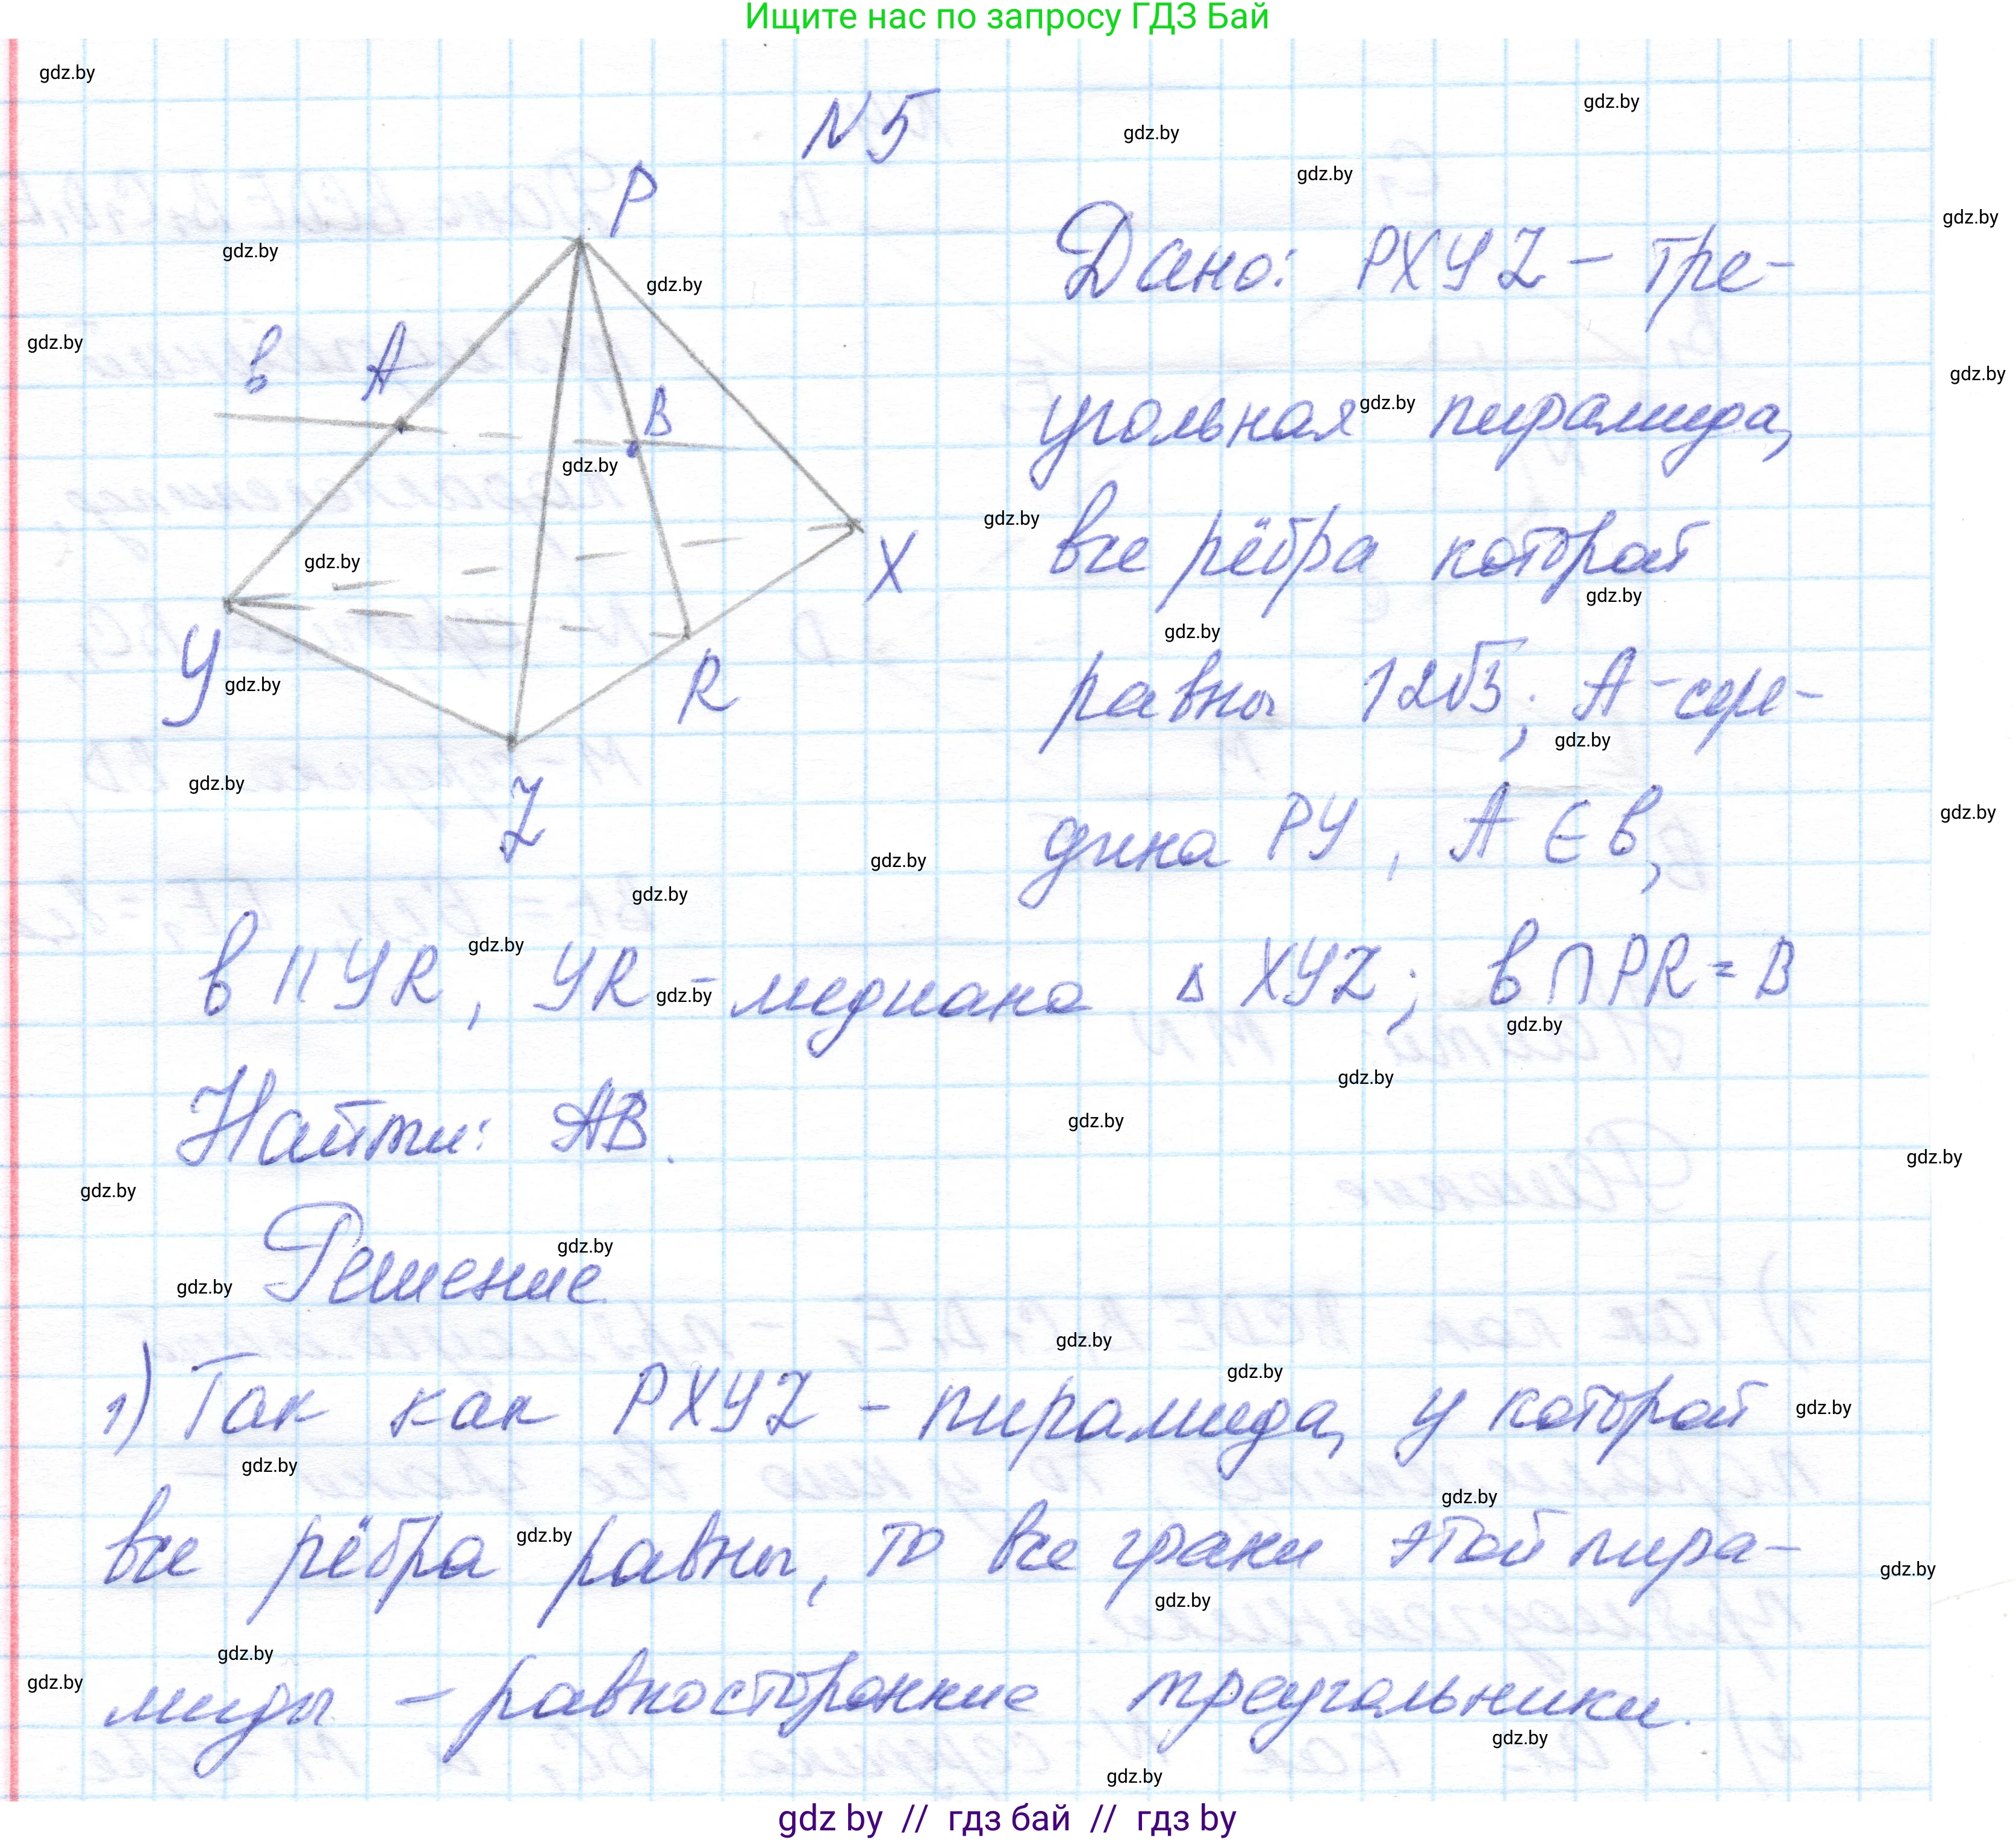 Ищите нас по запросу ГДЗ Бай
N5
P
в A
B
X
У
R
Z
Дано: PXYZ – тре-
угольная пирамида,
все рёбра которой
равны 12√3; А – сере-
дина РУ, А ∈ в,
в || УR, УR – медиана ∆ XYZ; в ∩ PR = B
Найти: АВ.
Решение
1) Так как PXYZ – пирамида, у которой
все рёбра равны, то все грани этой пира-
миды – равносторонние треугольники.
gdz by // гдз бай // гдз by
gdz.by